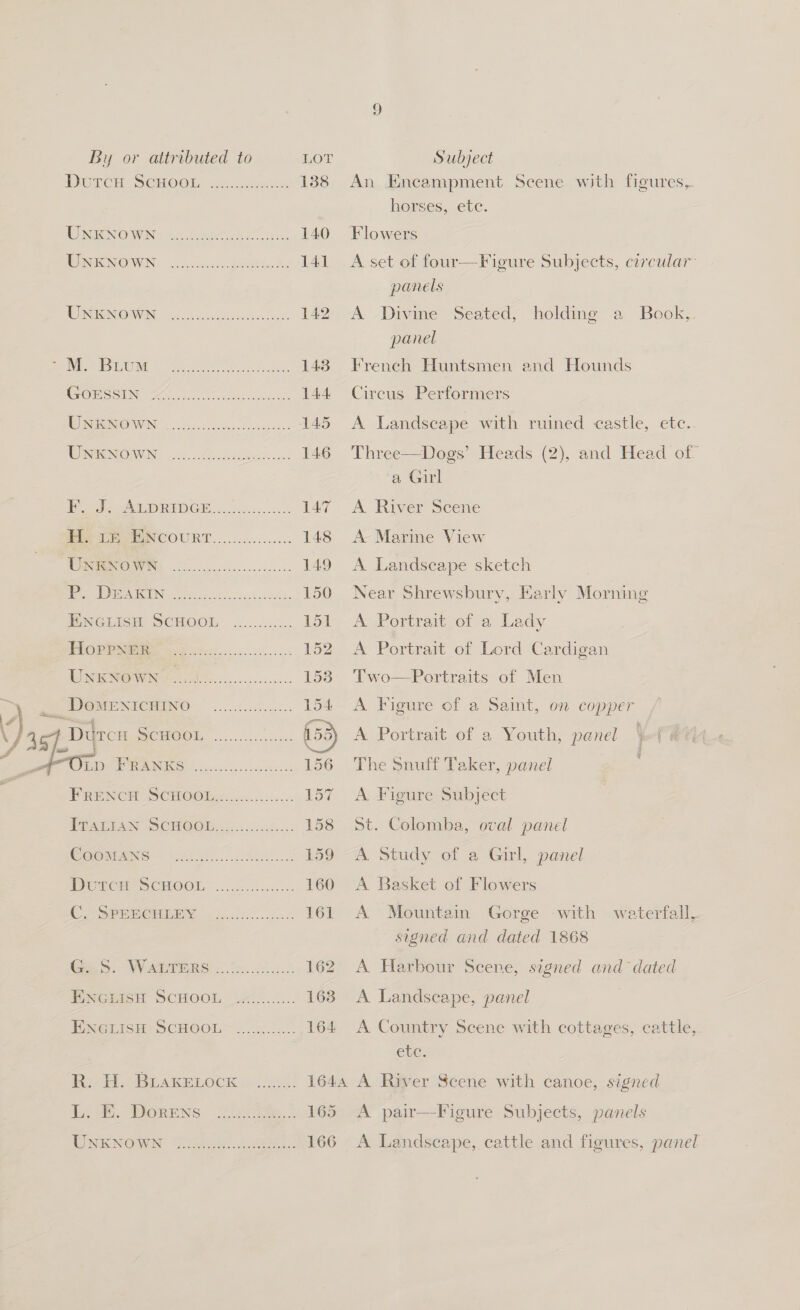 9
By or attributed to LOT Subject
DUTCH SCHOOL ............... 138 An Encampment Scene with figures,
horses, etc.
UNKNOWN ............... 140 Flowers
UNKNOWN ............... 141 A set of four—Figure Subjects, circular
panels
UNKNOWN ............... 142 A Divine Seated, holding a Book,
panel
M. BLUM ............... 143 French Huntsmen and Hounds
GOESSIN ............... 144 Circus Performers
UNKNOWN ............... 145 A Landscape with ruined castle, etc.
UNKNOWN ............... 146 Three—Dogs' Heads (2), and Head of
a Girl
F. J. ALDRIDGE ............... 147 A River Scene
H. LE ENCOURT ............... 148 A Marine View
UNKNOWN ............... 149 A Landscape sketch
P. DEAKIN ............... 150 Near Shrewsbury, Early Morning
ENGLISH SCHOOL ............... 151 A Portrait of a Lady
HOPPNER ............... 152 A Portrait of Lord Cardigan
UNKNOWN ............... 153 Two—Portraits of Men
DOMENICHINO ............... 154 A Figure of a Saint, on copper
DUTCH SCHOOL ............... 155 A Portrait of a Youth, panel
OLD FRANKS ............... 156 The Snuff Taker, panel
FRENCH SCHOOL ............... 157 A Figure Subject
ITALIAN SCHOOL ............... 158 St. Colomba, oval panel
COOMANS ............... 159 A Study of a Girl, panel
DUTCH SCHOOL ............... 160 A Basket of Flowers
C. SPEECHLEY ............... 161 A Mountain Gorge with waterfall,
signed and dated 1868
G. S. WALTERS ............... 162 A Harbour Scene, signed and dated
ENGLISH SCHOOL ............... 163 A Landscape, panel
ENGLISH SCHOOL ............... 164 A Country Scene with cottages, cattle,
etc.
R. H. BLAKELOCK ........ 164A A River Scene with canoe, signed
L. E. DORENS ............... 165 A pair—Figure Subjects, panels
UNKNOWN ............... 166 A Landscape, cattle and figures, panel